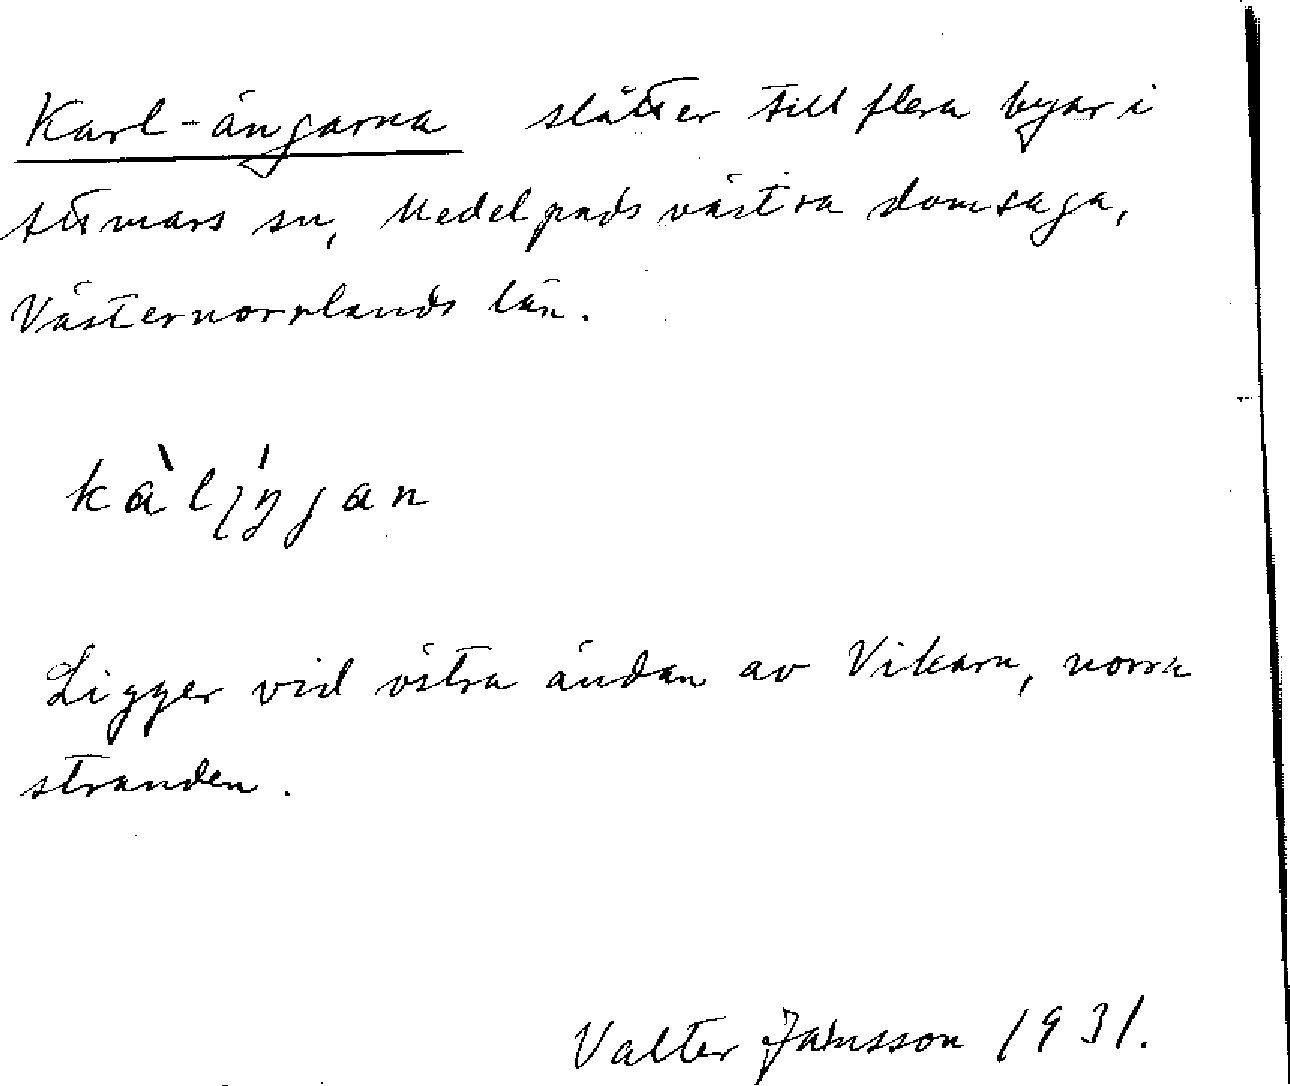 Karl-ängarna slåtter till flera byar i
Attmars sn, Medelpads västra domsaga,
Västernorrlands län.
Ligger vid östra ändan av Vikarn, norra
stranden.
Valter Jansson 1931.